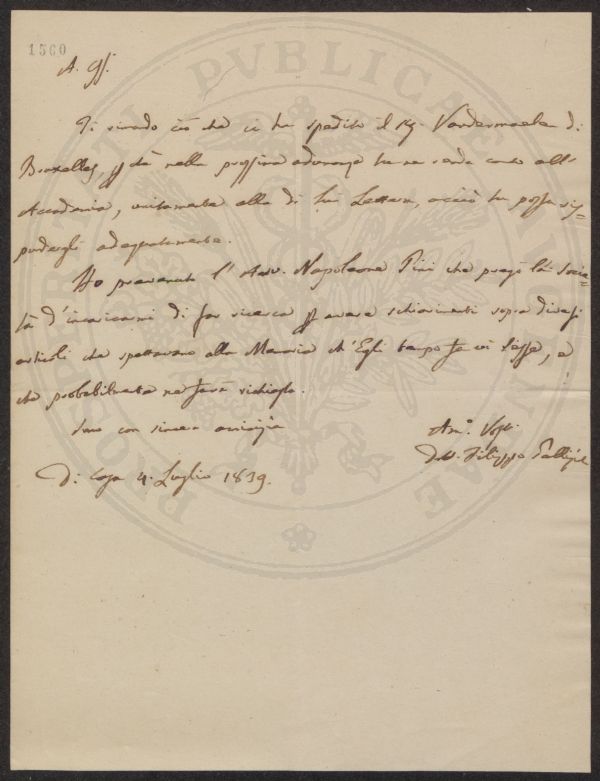 1560
A. C.
Ti rimando ciò che ci ha spedito il Sig. Vandermaelen di
Bruxelles, che nella prossima adunanza tu ne renda conto all'
Accademia, unitamente alla di lui Lettera, acciò tu possa ris=
pondergli adeguatamente.
Ho prevenuto l'Avv. Napoleone Pini che pregò la Socie=
tà d'incaricarmi di far ricerca avere schiarimenti sopra diversi
articoli che spettavano alla Memoria ch'Egli tempo fa vi lesse, e
che probabilmente ne farà richiesta.
Sono con sincera amicizia
Di Casa 4. Luglio 1839.
Am.o Vost.
Filippo
PROSPERITATI PVBLICAE AVGENDAE